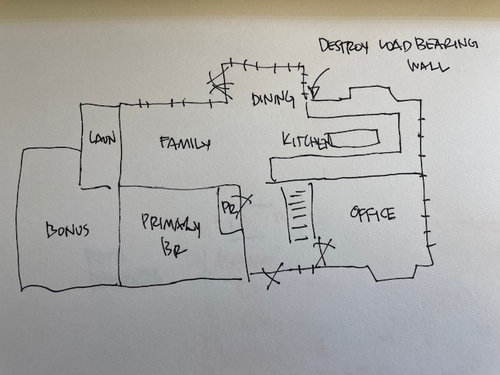 DESTROY LOAD BEARING
WALL
DINING
LAUN
FAMILY
KITCHEN
PR
BONUS
PRIMARY
BR
OFFICE